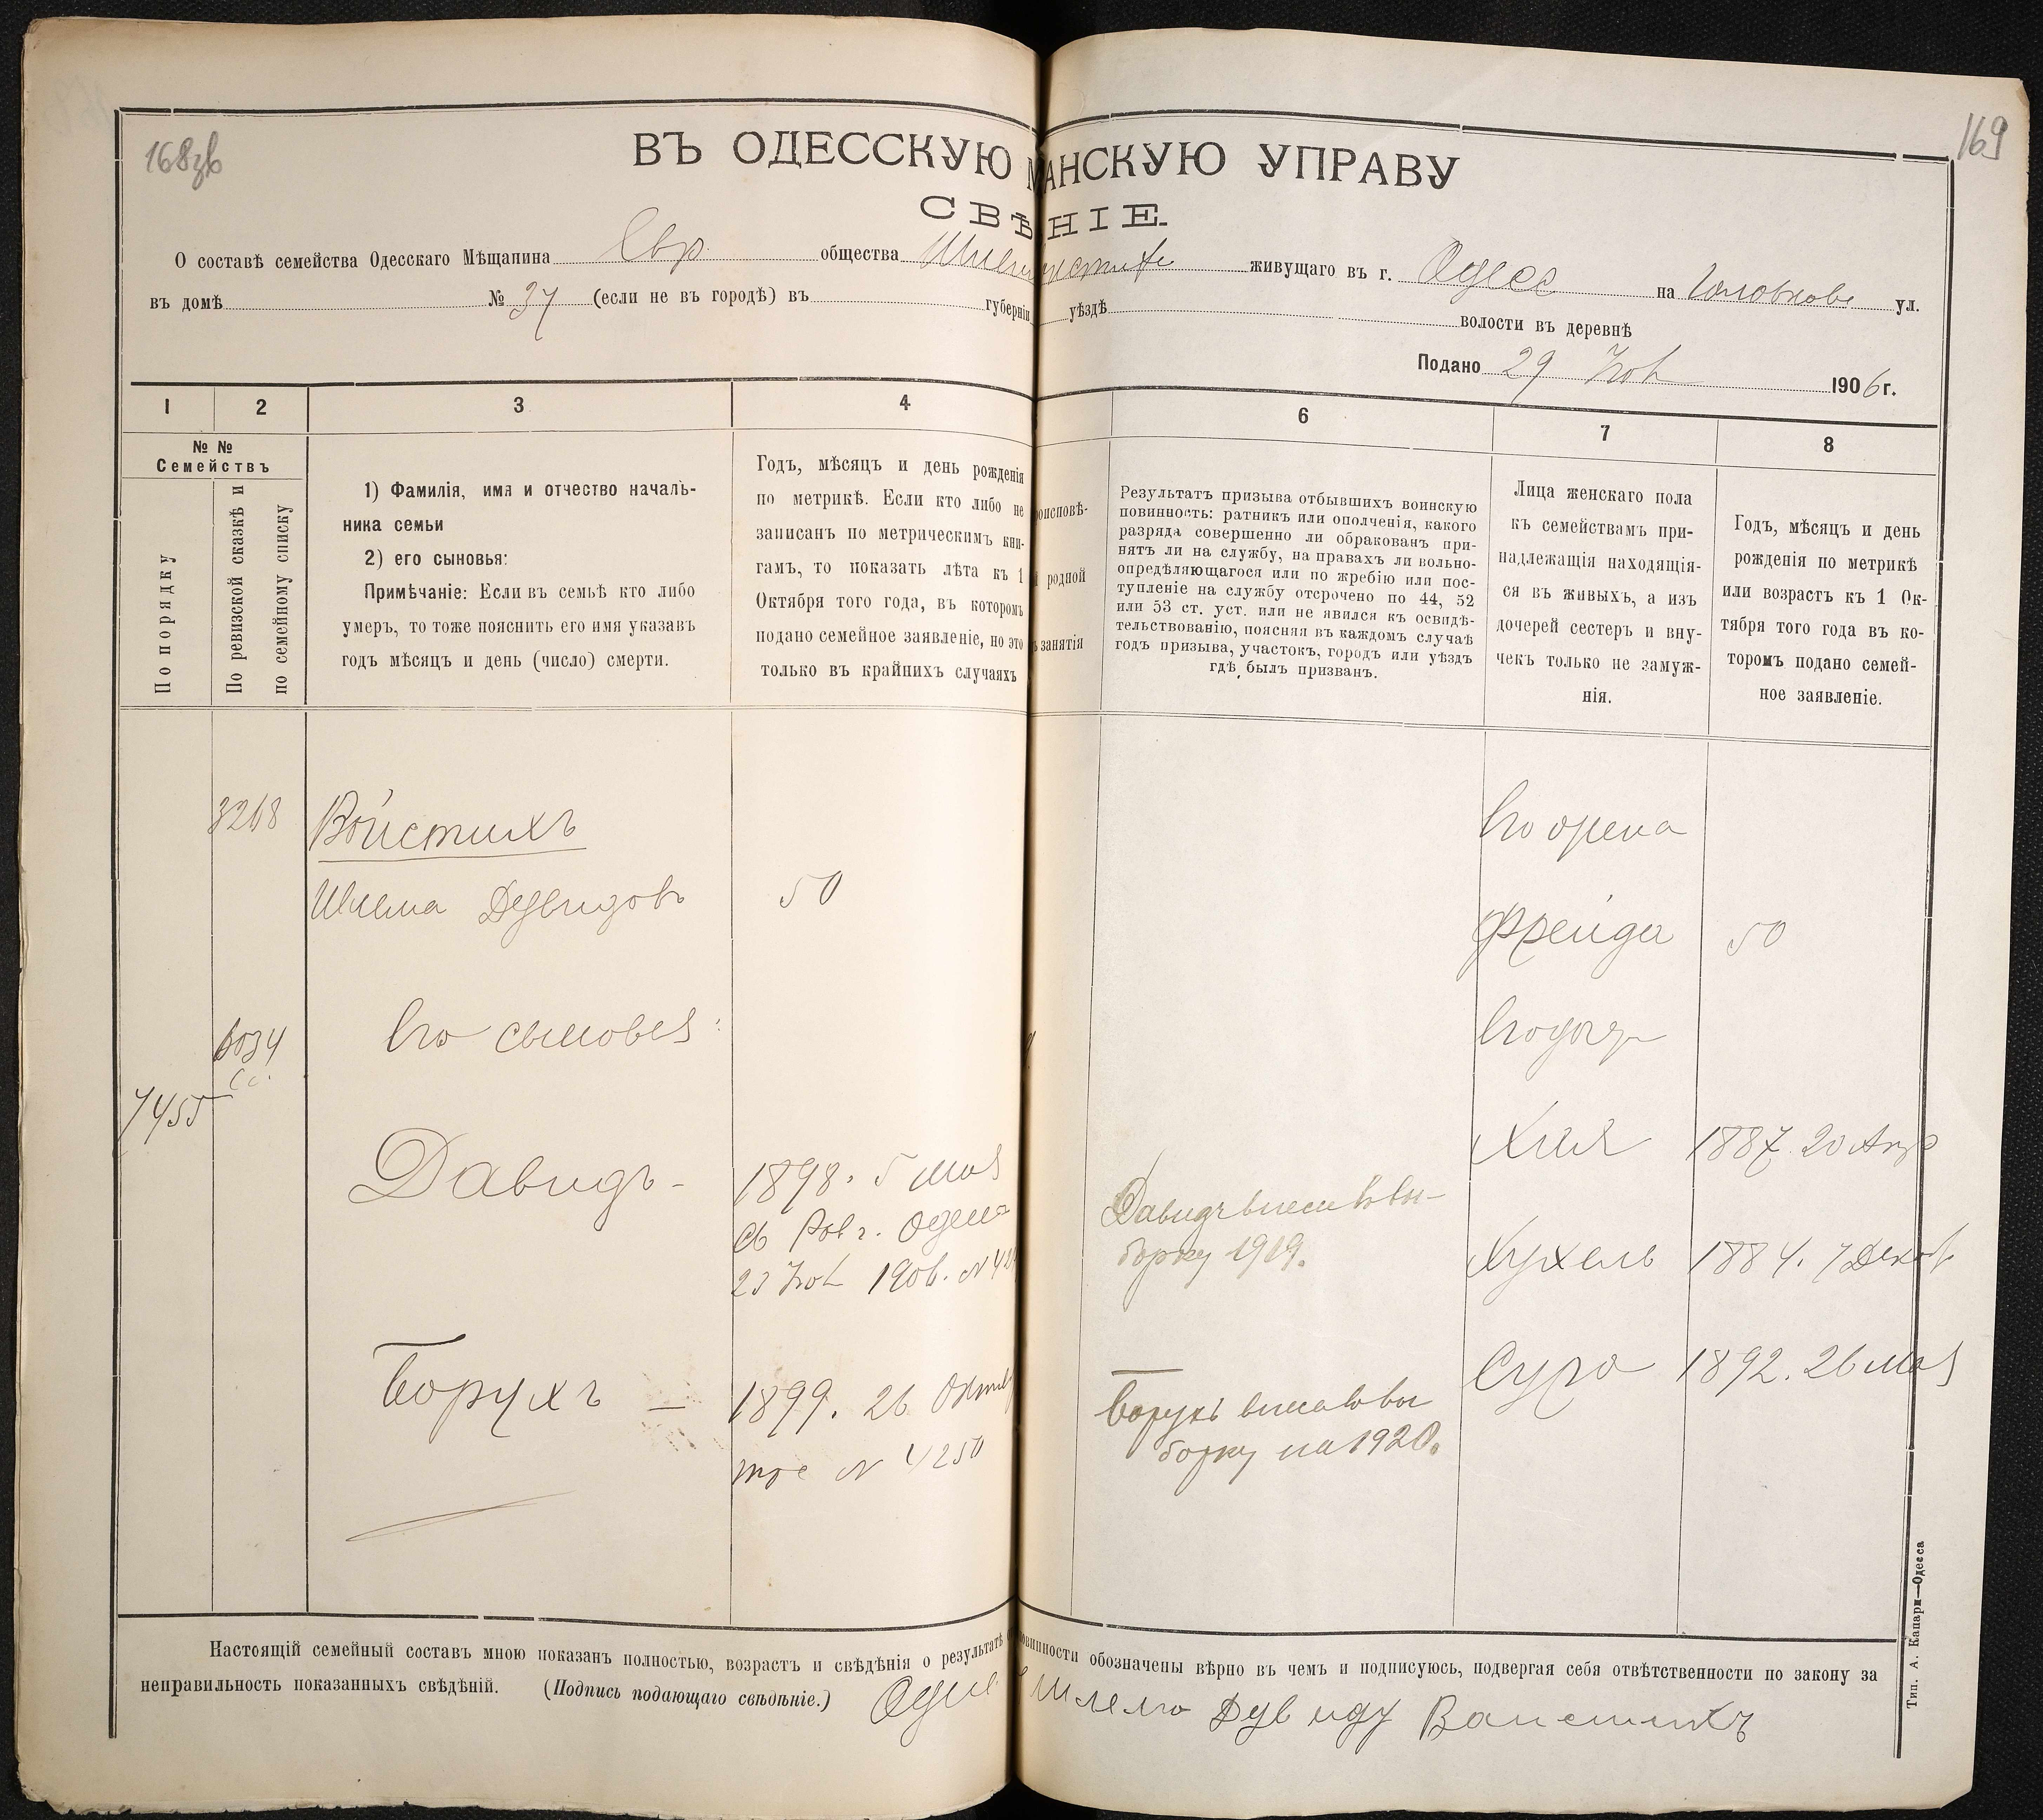 168зв
169
ВЪ ОДЕССКУЮ М АНСКУЮ УПРАВУ
СВѢ НІЕ.
О составѣ семейства Одесскаго Мѣщанина Евр. общества живущаго въ г. Одесс на ул.
въ домѣ № 37 (если не въ городѣ) въ губерніи уѣздѣ
волости въ деревнѣ
Подано 29 Ноя 1906 г.
1 2 3 4 6 7 8
№ №
Семействъ
По порядку
По ревизской сказкѣ и
по семейному списку
1) Фамилія, имя и отчество началь-
ника семьи
2) его сыновья:
Примѣчаніе: Если въ семьѣ кто либо
умеръ, то тоже пояснить его имя указавъ
годъ мѣсяцъ и день (число) смерти.
Годъ, мѣсяцъ и день рожденія
по метрикѣ. Если кто либо не
записанъ по метрическимъ кни-
гамъ, то показать лѣта къ 1
Октября того года, въ которомъ
подано семейное заявленіе, но это
только въ крайнихъ случаяхъ
роисповѣ-
родной
занятія
Результатъ призыва отбывшихъ воинскую
повинность: ратникъ или ополченія, какого
разряда совершенно ли обракованъ при-
нятъ ли на службу, на правахъ ли вольно-
опредѣляющагося или по жребію или пос-
тупленіе на службу отсрочено по 44, 52
или 53 ст. уст. или не явился къ освидѣ-
тельствованію, поясняя въ каждомъ случаѣ
годъ призыва, участокъ, городъ или уѣздъ
гдѣ былъ призванъ.
Лица женскаго пола
къ семействамъ при-
надлежащія находящія-
ся въ живыхъ, а изъ
дочерей сестеръ и вну-
чекъ только не замуж-
нія.
Годъ, мѣсяцъ и день
рожденія по метрикѣ
или возрастъ къ 1 Ок-
тября того года въ ко-
торомъ подано семей-
ное заявленіе.
3268
Войстихъ
Его жена
Шлема Дувидовъ 50
Фрейда 50
6034
Его сыновья:
Его дочр
7455
Хая 1887. 20 Апр
Давидъ - 1898. 5 мая
Св Рав г. Одесса
23 Ноя 1906. №
Давидъ внесен въ вы-
борку 1919.
Хухель 1884. 7 Декаб
Борухъ — 1899. 26 Октяб
тоже № 4250
Борухъ внесен въ вы
борку на 1920.
Сура 1892. 26 мая
Настоящій семейный составъ мною показанъ полностью, возрастъ и свѣдѣнія о результатѣ овинности обозначены вѣрно въ чемъ и подписуюсь, подвергая себя отвѣтственности по закону за
неправильность показанныхъ свѣдѣній. (Подпись подающаго свѣдѣніе.) Шлемо Дувиду Ваистихъ
Тип. А. Капари—Одесса